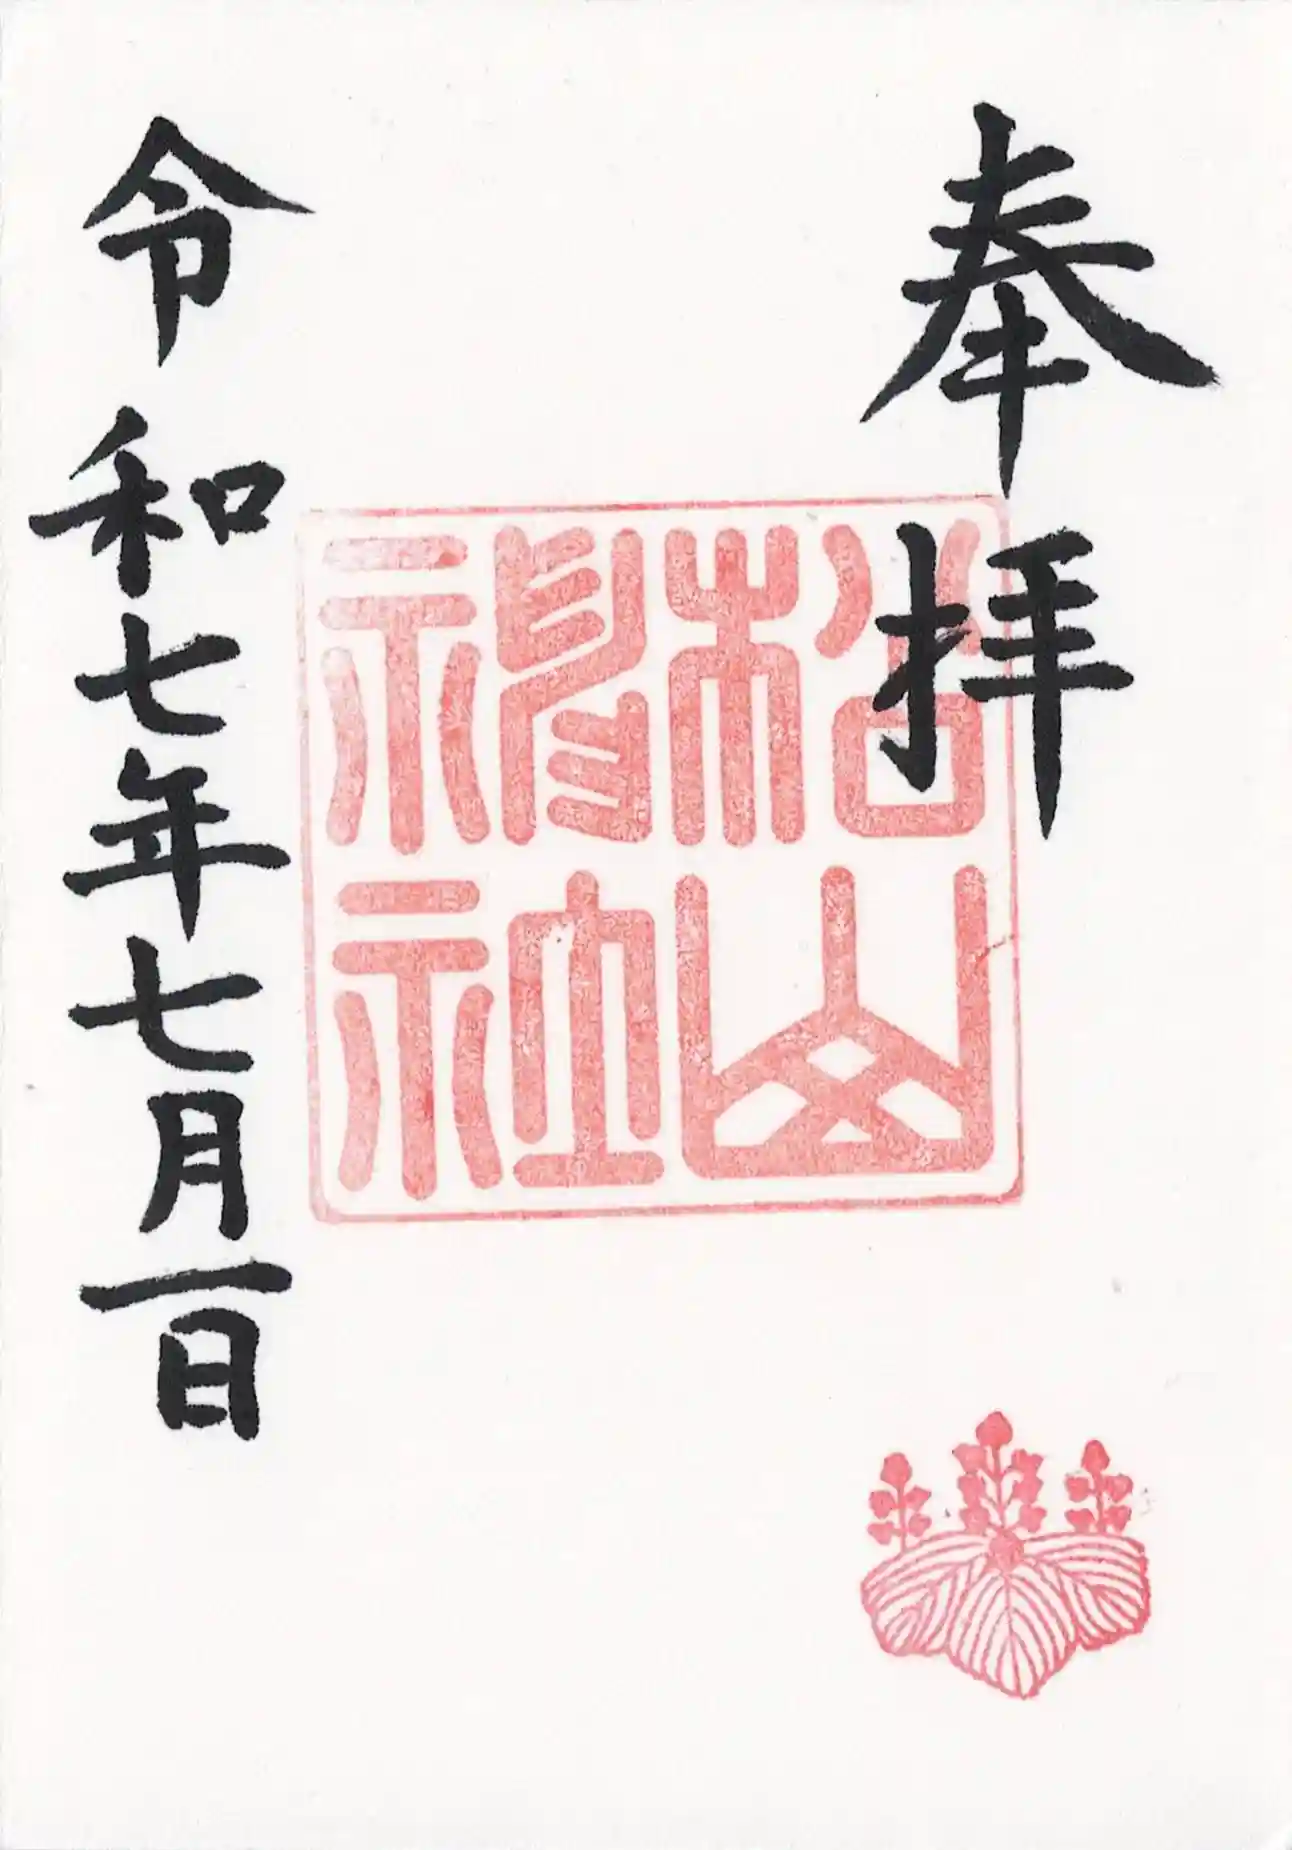 奉拝
松山神社
令和七年七月一日